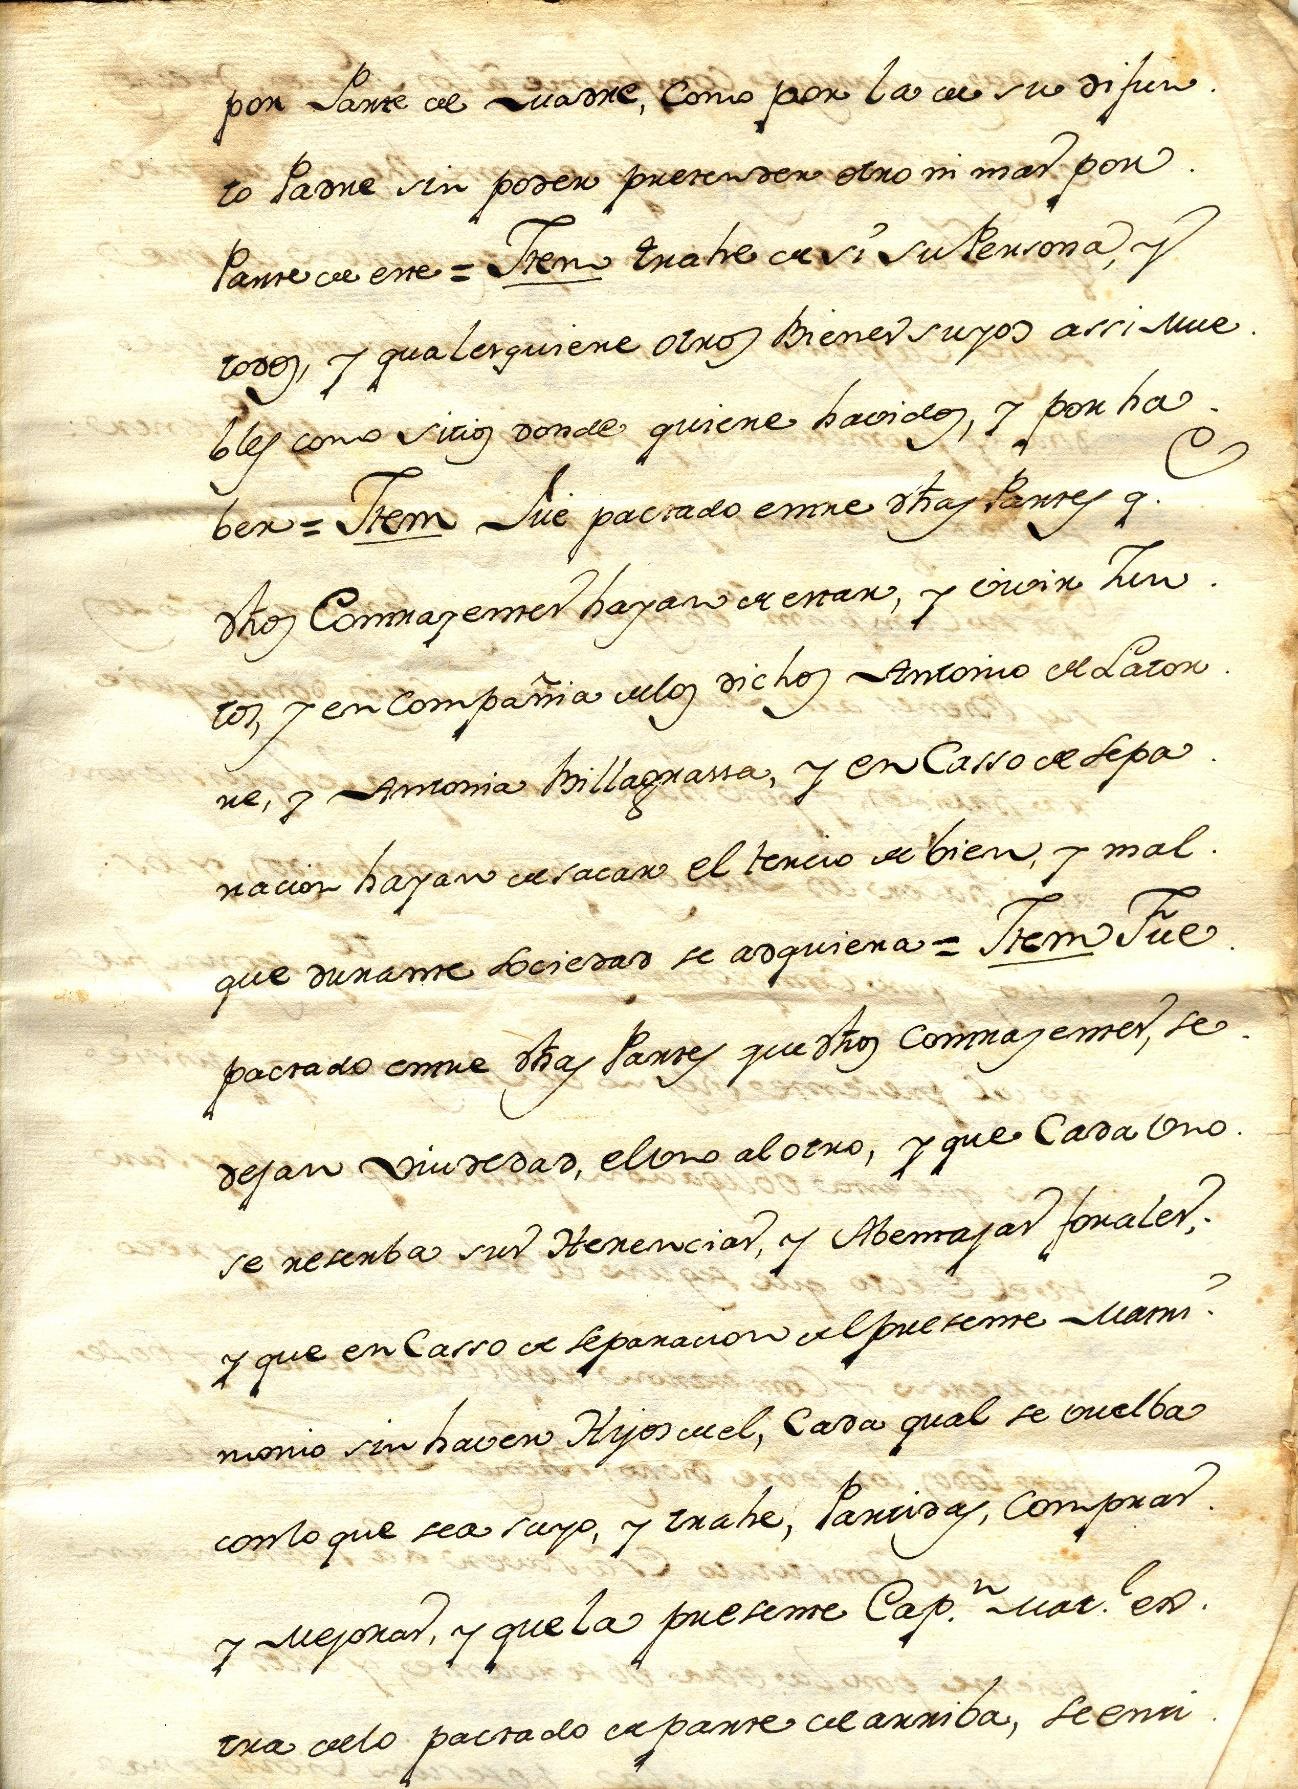 por Parte de Madre, como por la de su difun.
to Padre sin poder pretender otro ni mas por.
Parte de este = Item trahe de sí su Persona, y
todos, y qualesquiere otros Bienes suyos assi Mue.
bles como sitios donde quiere havidos, y por ha.
ber = Item Fue pactado entre dhas Partes q.e
dhos Contrayentes hayan de estar, y vivir Jun.
tos, y en Compañia de los dichos Antonio de Lator.
re, y Antonia Billagrassa, y en Casso de Sepa.
racion hayan de sacar el tercio de bien, y mal.
que durante sociedad se adquiera = Item Fue.
pactado entre dhas Partes que dhos Contrayentes, se.
dejan Viudedad, el Uno al otro, y que Cada Uno.
se reserba sus Herencias, y Abentajas forales,.
y que en Casso de Separacion del presente Matri.
monio sin haver Hijos de el, Cada qual se vuelba
con lo que sea suyo, y trahe, Partidas, Compras.
y Mejoras, y que la presente Cap.n Mat.l es.
tra de lo pactado de parte de arriba, se enti.